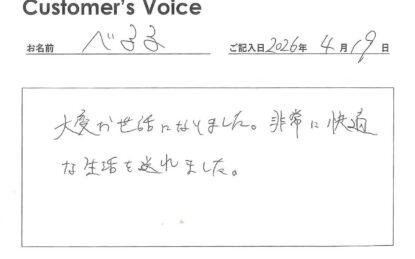 Customer's Voice
お名前 べるる ご記入日 2026年 4月 19日
大変お世話になりました。非常に快適
な生活を送れました。